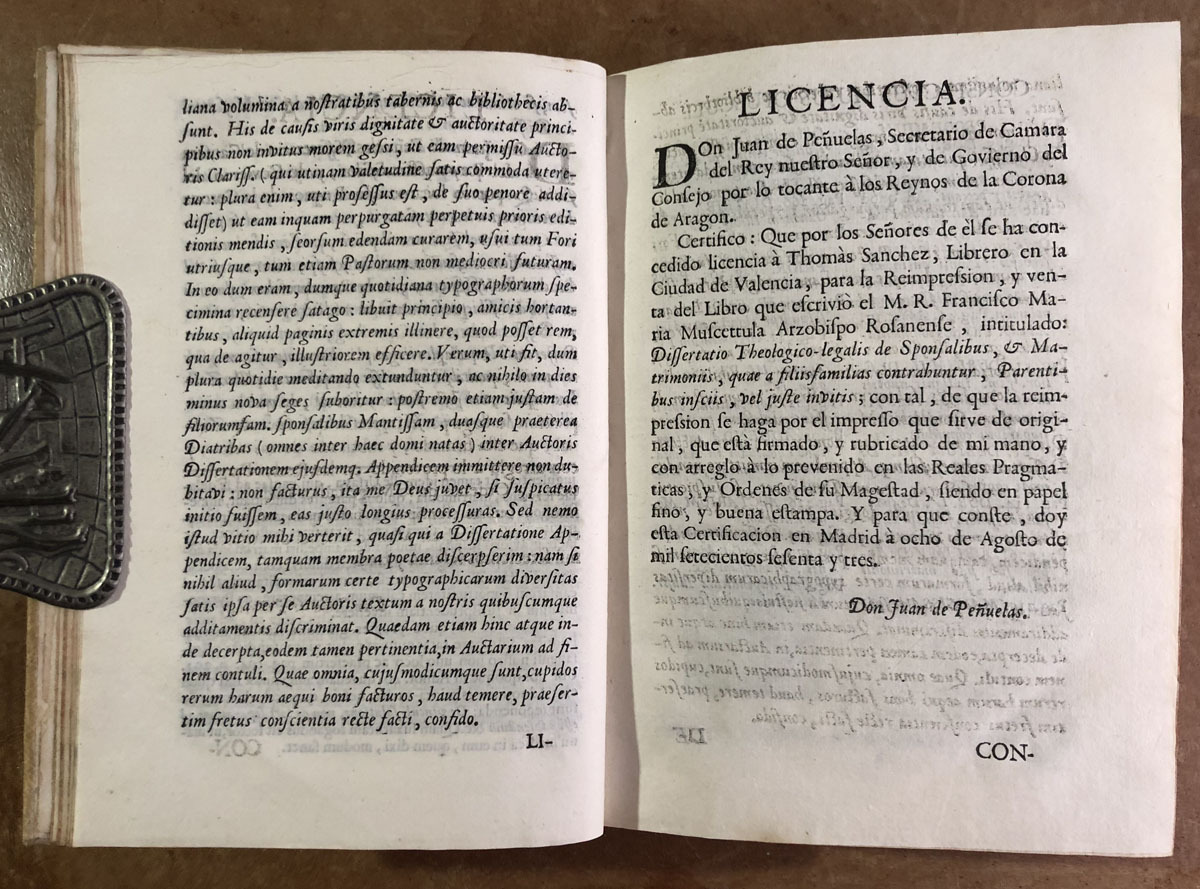 liana volumina a noſtratibus tabernis ac bibliothecis ab-
ſunt. His de cauſis viris dignitate & auctoritate princi-
pibus non invitus morem geſſi, ut eam permiſſu Aucto-
ris Clariſſ. (qui utinam valetudine ſatis commoda utere-
tur: plura enim, uti profeſſus eſt, de ſuo penore addi-
diſſet) ut eam inquam perpurgatam perpetuis prioris edi-
tionis mendis, ſeorſum edendam curarem, uſui tum Fori
utriuſque, tum etiam Paſtorum non mediocri futuram.
In eo dum eram, dumque quotidiana typographorum ſpe-
cimina recenſere ſatago: libuit principio, amicis hortan-
tibus, aliquid paginis extremis illinere, quod poſſet rem,
qua de agitur, illuſtriorem efficere. Verum, uti fit, dum
plura quotidie meditando extunduntur, ac nihilo in dies
minus nova ſeges ſuboritur: poſtremo etiam juſtam de
filiorumfam. ſponſalibus Mantiſſam, duaſque praeterea
Diatribas (omnes inter haec domi natas) inter Auctoris
Diſſertationem ejuſdemq. Appendicem immittere non du-
bitavi: non facturus, ita me Deus juvet, ſi ſuſpicatus
initio fuiſſem, eas juſto longius proceſſuras. Sed nemo
iſtud vitio mihi verterit, quaſi qui a Diſſertatione Ap-
pendicem, tamquam membra poetae diſcerpſerim: nam ſi
nihil aliud, formarum certe typographicarum diverſitas
ſatis ipſa per ſe Auctoris textum a noſtris quibuſcumque
additamentis diſcriminat. Quaedam etiam hinc atque in-
de decerpta, eodem tamen pertinentia, in Auctarium ad fi-
nem contuli. Quae omnia, cujuſmodicumque ſunt, cupidos
rerum harum aequi boni facturos, haud temere, praeſer-
tim fretus conſcientia recte facti, confido.
LI-
LICENCIA.
DOn Juan de Peñuelas, Secretario de Camara
del Rey nueſtro Señor, y de Govierno del
Conſejo por lo tocante à los Reynos de la Corona
de Aragon.
Certifico: Que por los Señores de èl ſe ha con-
cedido licencia à Thomàs Sanchez, Librero en la
Ciudad de Valencia, para la Reimpreſsion, y ven-
ta del Libro que eſcriviò el M. R. Franciſco Ma-
ria Muſcettula Arzobiſpo Roſanenſe, intitulado:
Diſſertatio Theologico-legalis de Sponſalibus, & Ma-
trimoniis, quae a filiisfamilias contrahuntur, Parenti-
bus inſciis, vel juſte invitis; con tal, de que la reim-
preſsion ſe haga por el impreſſo que ſirve de origi-
nal, que eſtà firmado, y rubricado de mi mano, y
con arreglo à lo prevenido en las Reales Pragma-
ticas, y Ordenes de ſu Mageſtad, ſiendo en papel
fino, y buena eſtampa. Y para que conſte, doy
eſta Certificacion en Madrid à ocho de Agoſto de
mil ſetecientos ſeſenta y tres.
Don Juan de Peñuelas.
CON-